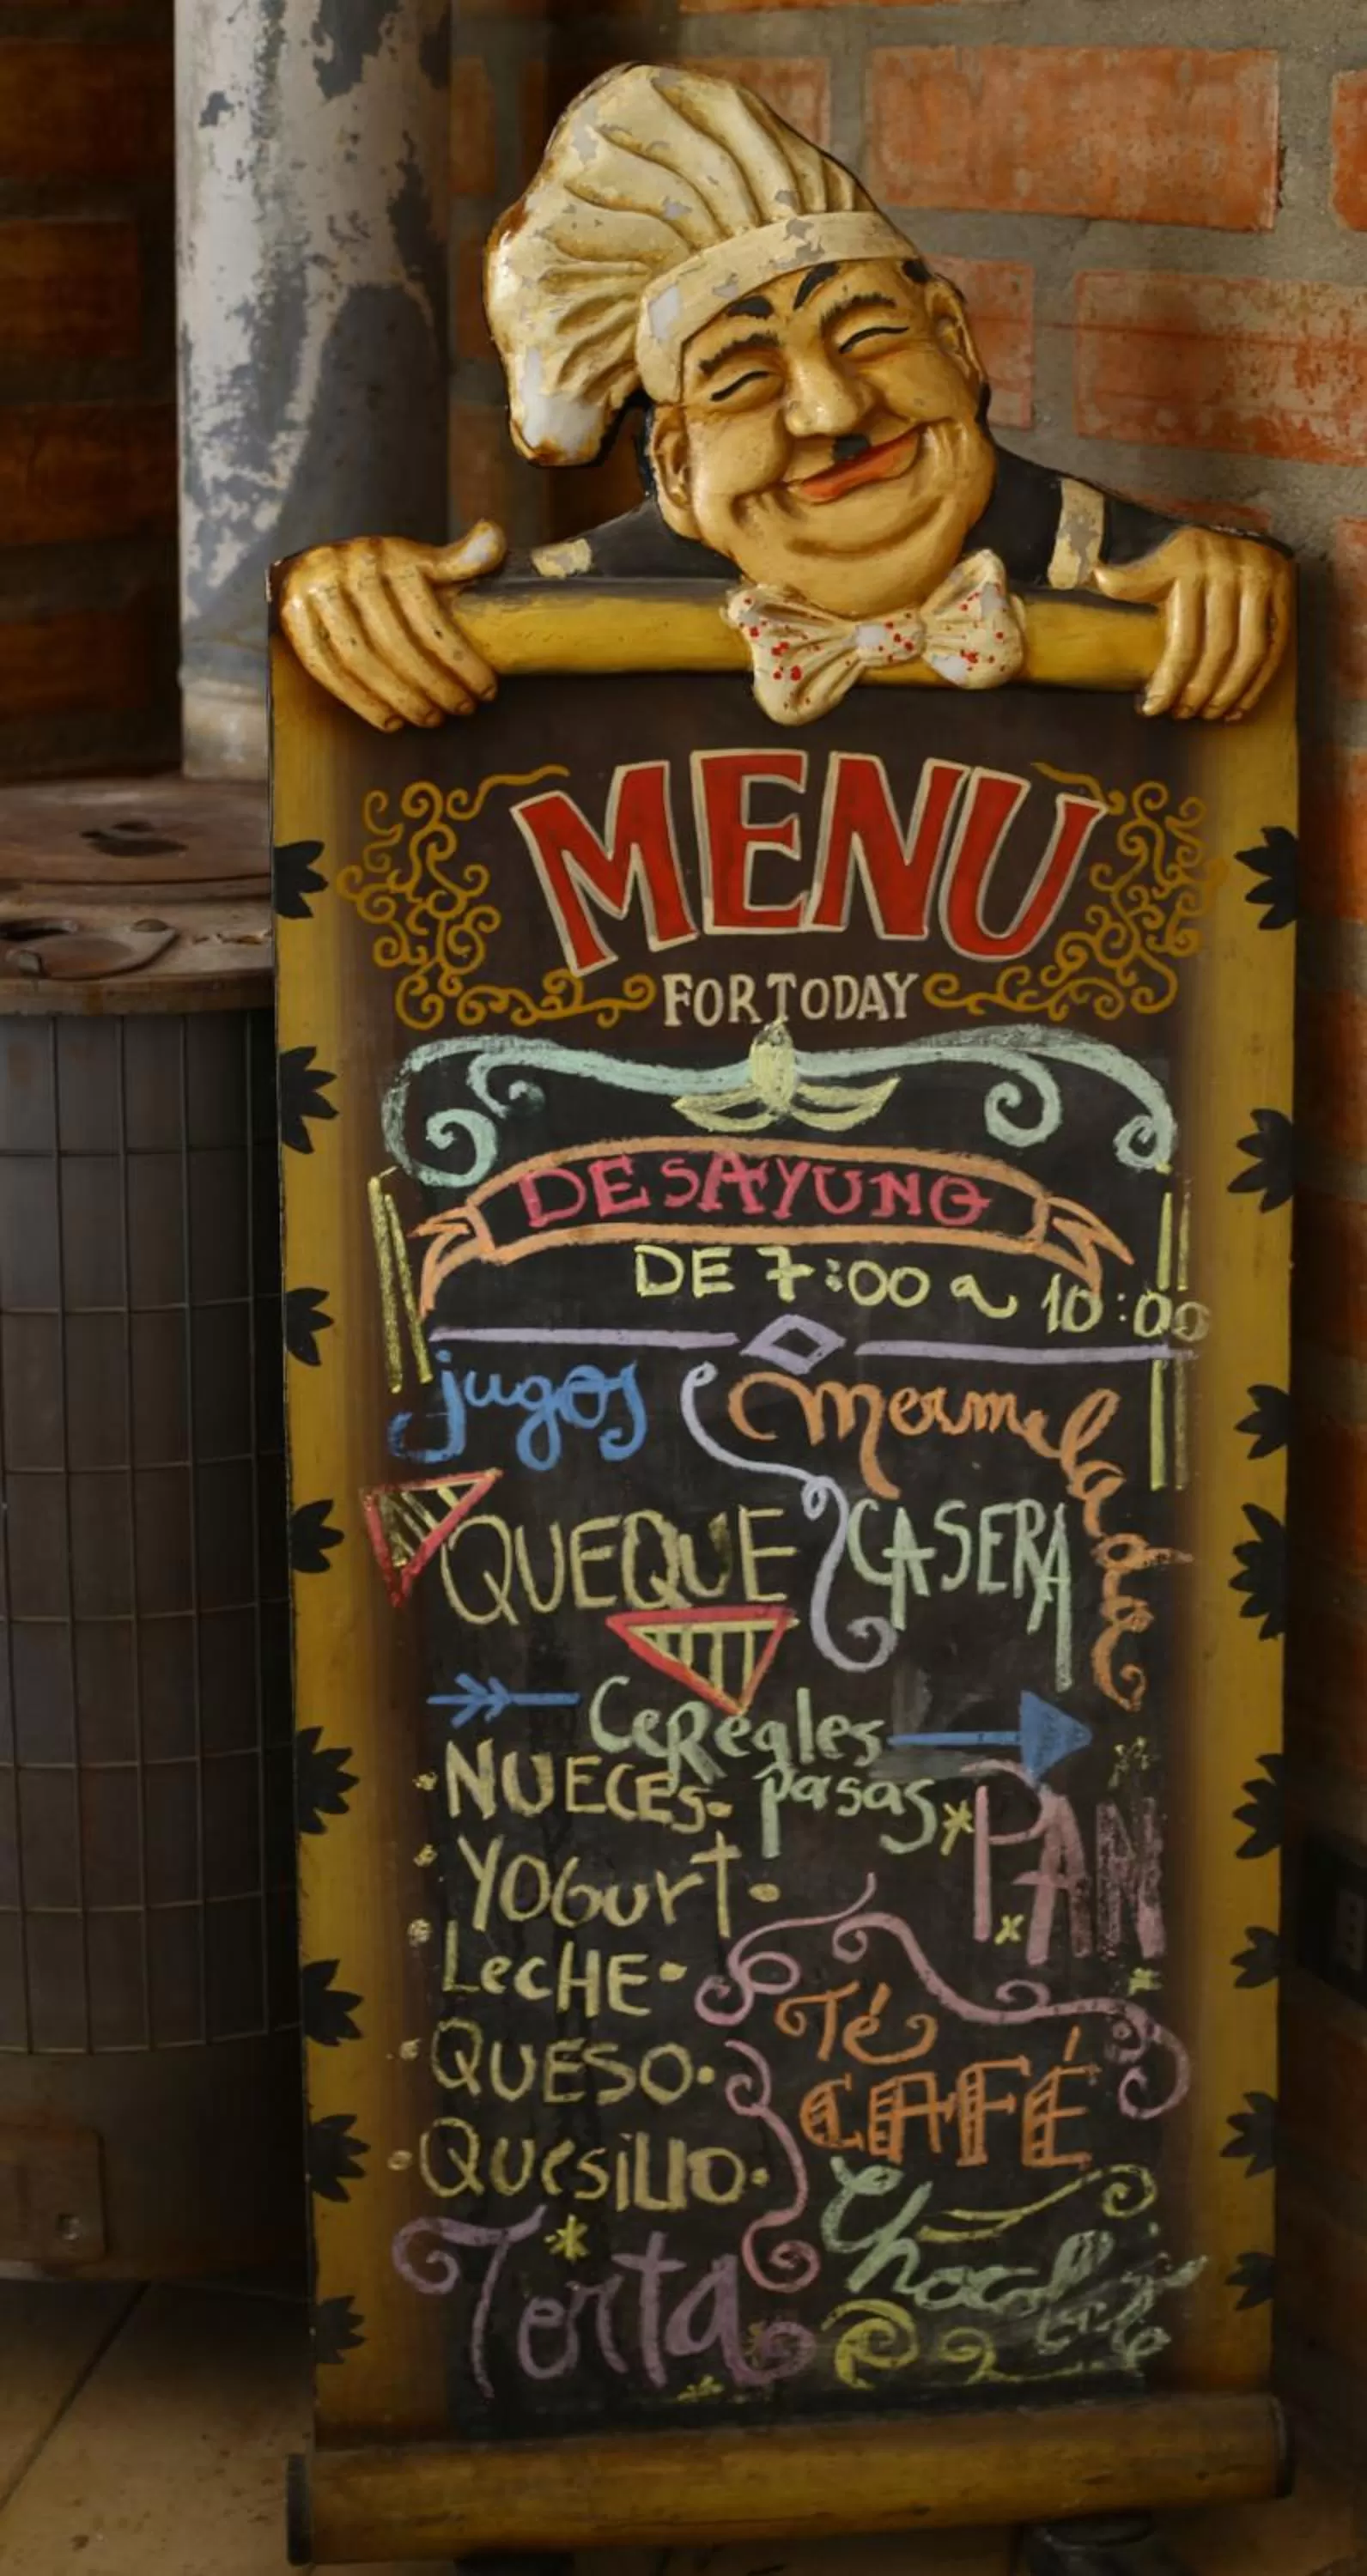 MENU
FOR TODAY
DESAYUNO
DE 7:00 a 10:00
jugos
Mermelada
QUEQUE
CASERA
CeReales
NUECES- pasas
PAN
YOGurt
LecHE
Té
QUESO
CAFÉ
QUesillo
Chocolate
Torta